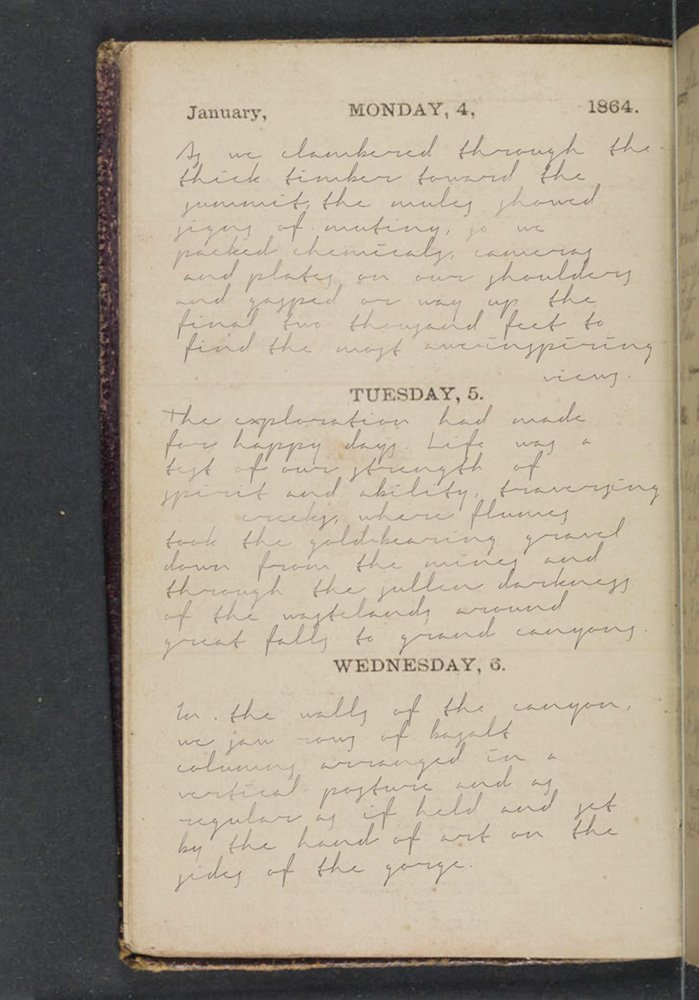 January, MONDAY, 4, 1864.
As we clambered through the
thick timber toward the
summit, the mules showed
signs of mutiny, so we
packed chemicals, cameras
and plates on our shoulders
and gasped or way up the
final two thousand feet to
find the most aweinspiring
views.
TUESDAY, 5.
The exploration had made
for happy days. Life was a
test of our strength of
spirit and ability, traversing
creeks, where flumes
took the gold-bearing gravel
down from the mines and
through the sullen darkness
of the wastelands around
great falls to grand canyons.
WEDNESDAY, 6.
In the walls of the canyon,
we saw rows of basalt
columns arranged in a
vertical posture and as
regular as if held and set
by the hand of art on the
sides of the gorge.